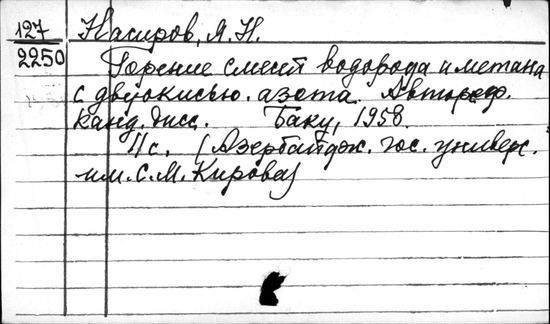 127 Насиров, Я. Н.
2250 Горение смесей водорода и метана
с двуокисью азота. Автореф.
канд. дисс. Баку, 1958.
11 с. (Азербайдж. гос. универс.
им. С. М. Кирова)